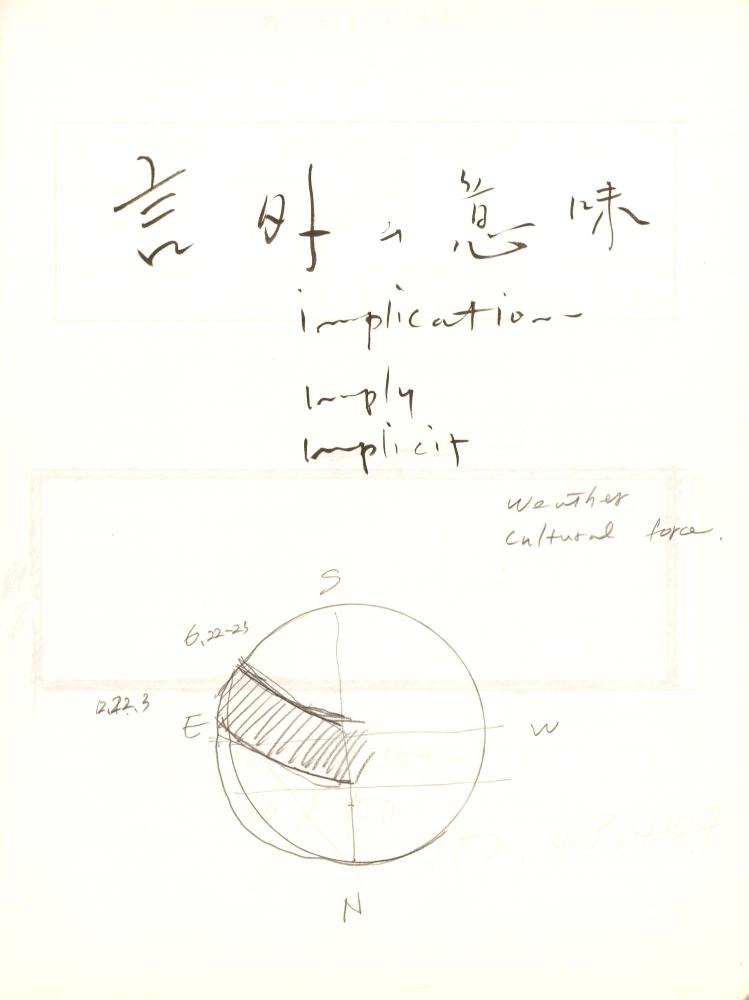 言外の意味
implication
imply
implicit
Weather
Cultural force.
S
6,22-23
12,22,3
E
W
N